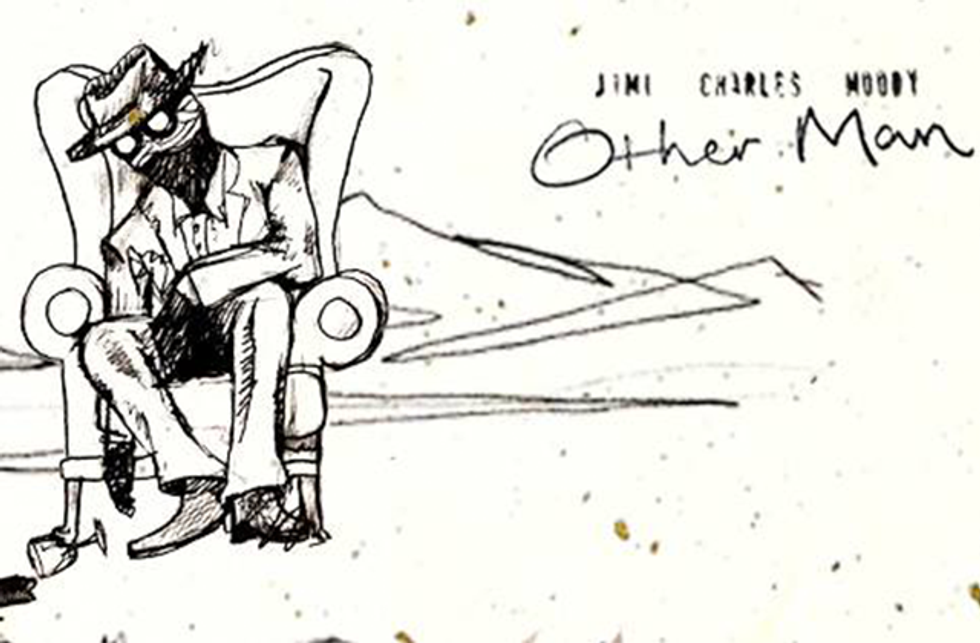 JIMI CHARLES MOODY
Other Man